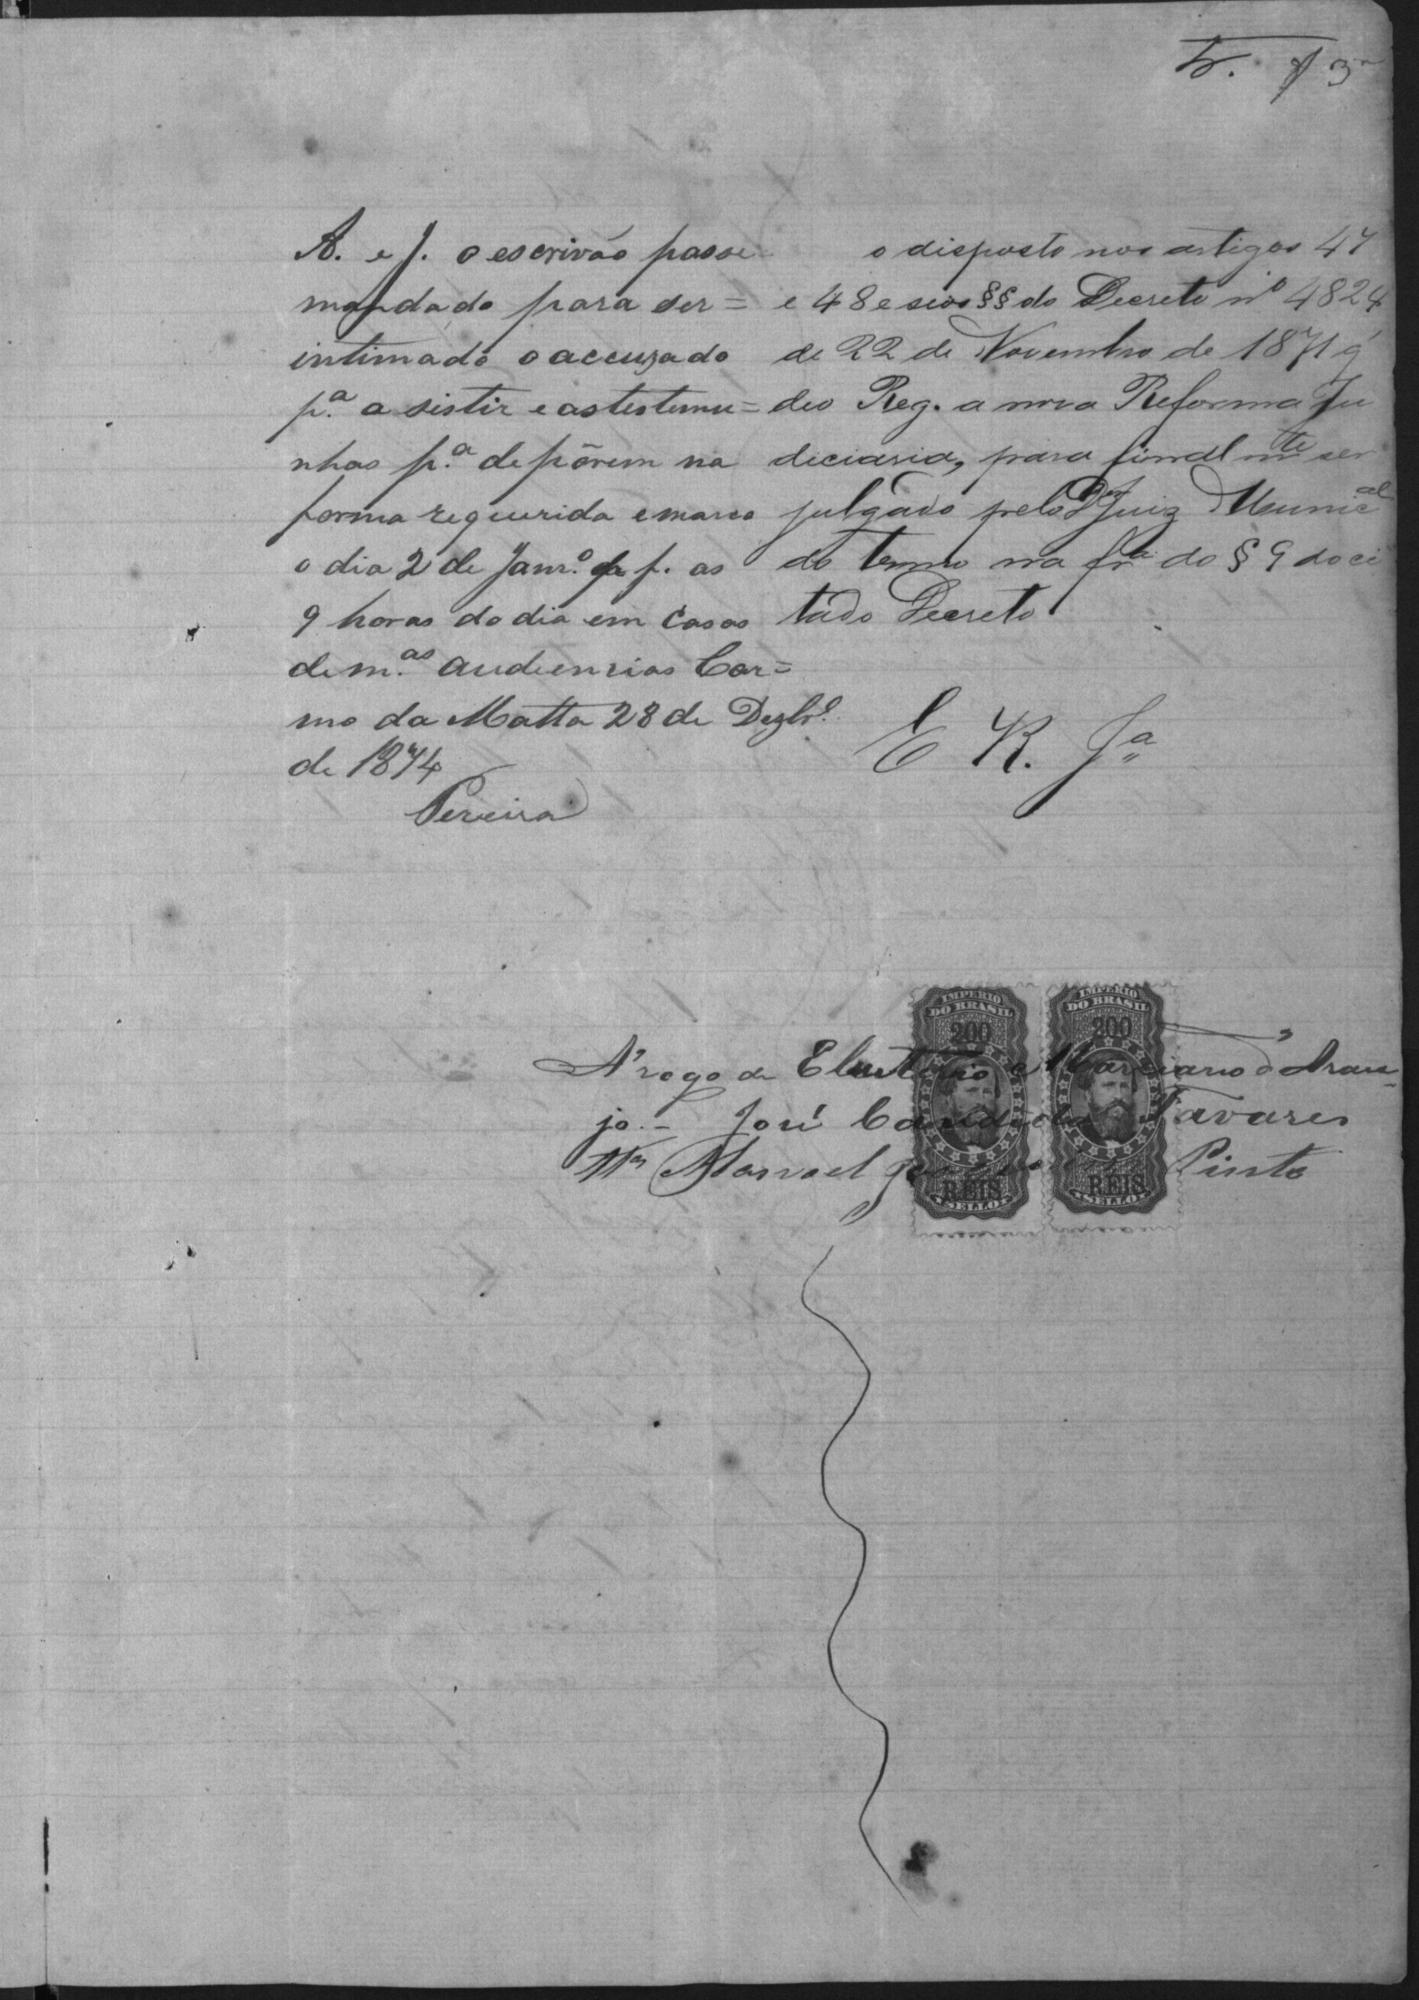 5.
3
A. e J. o escrivão passe
mandado para ser=
intimado o accuzado
p.ª a sistir e as testemu=
nhas p.ª depôrem na
forma requerida e marco
o dia 2 de Janr.º p. f. as
9 horas do dia em casas
de m.as audiencias Car=
mo da Matta 28 de Dezbr.º
de 1874
Pereira
o disposto nos artigos 47
e 48 e seos §§ do Decreto nº 4824
de 22 de Novembro de 1871 q'
deo Reg. a nova Reforma Ju
deciaria, para finalmte ser
julgado pelo Dr Juiz Munical
do termo na fra do § 9 do ci
tado Decreto
E R. Jª
IMPERIO
DO BRASIL
200
REIS
SELLO
IMPERIO
DO BRASIL
200
REIS
SELLO
A' rogo de Eleuterio Marciano d'Arau-
jo.- José Candido Tavares
Ttas Manoel Pinto